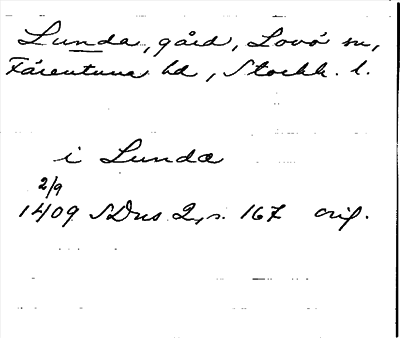 Lunda, gård, Lovö sn,
Färentuna hd, Stockh. l.
i Lunda
2/9
1409 SDns 2, s. 167 orig.